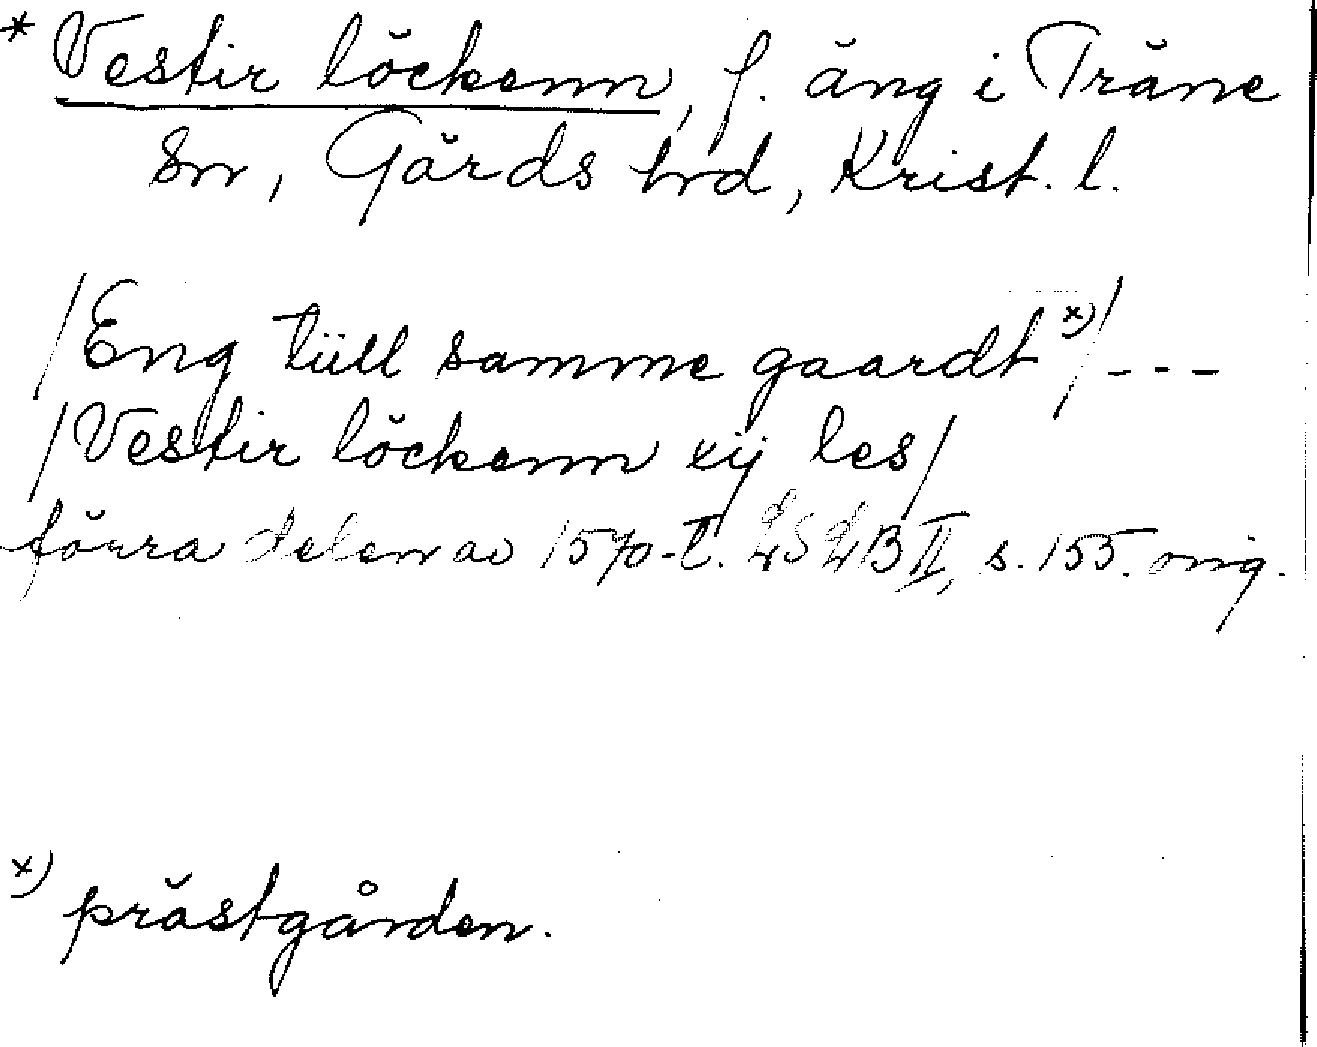 * Vestir löckenn, f. äng i Träne
sn, Gärds hrd, Krist. l.
/Eng tiill samme gaardt x)/ ---
/Vestir löckenn xij les/
förra delen av 1570-t. LSLB II, s. 155. orig.
x) prästgården.